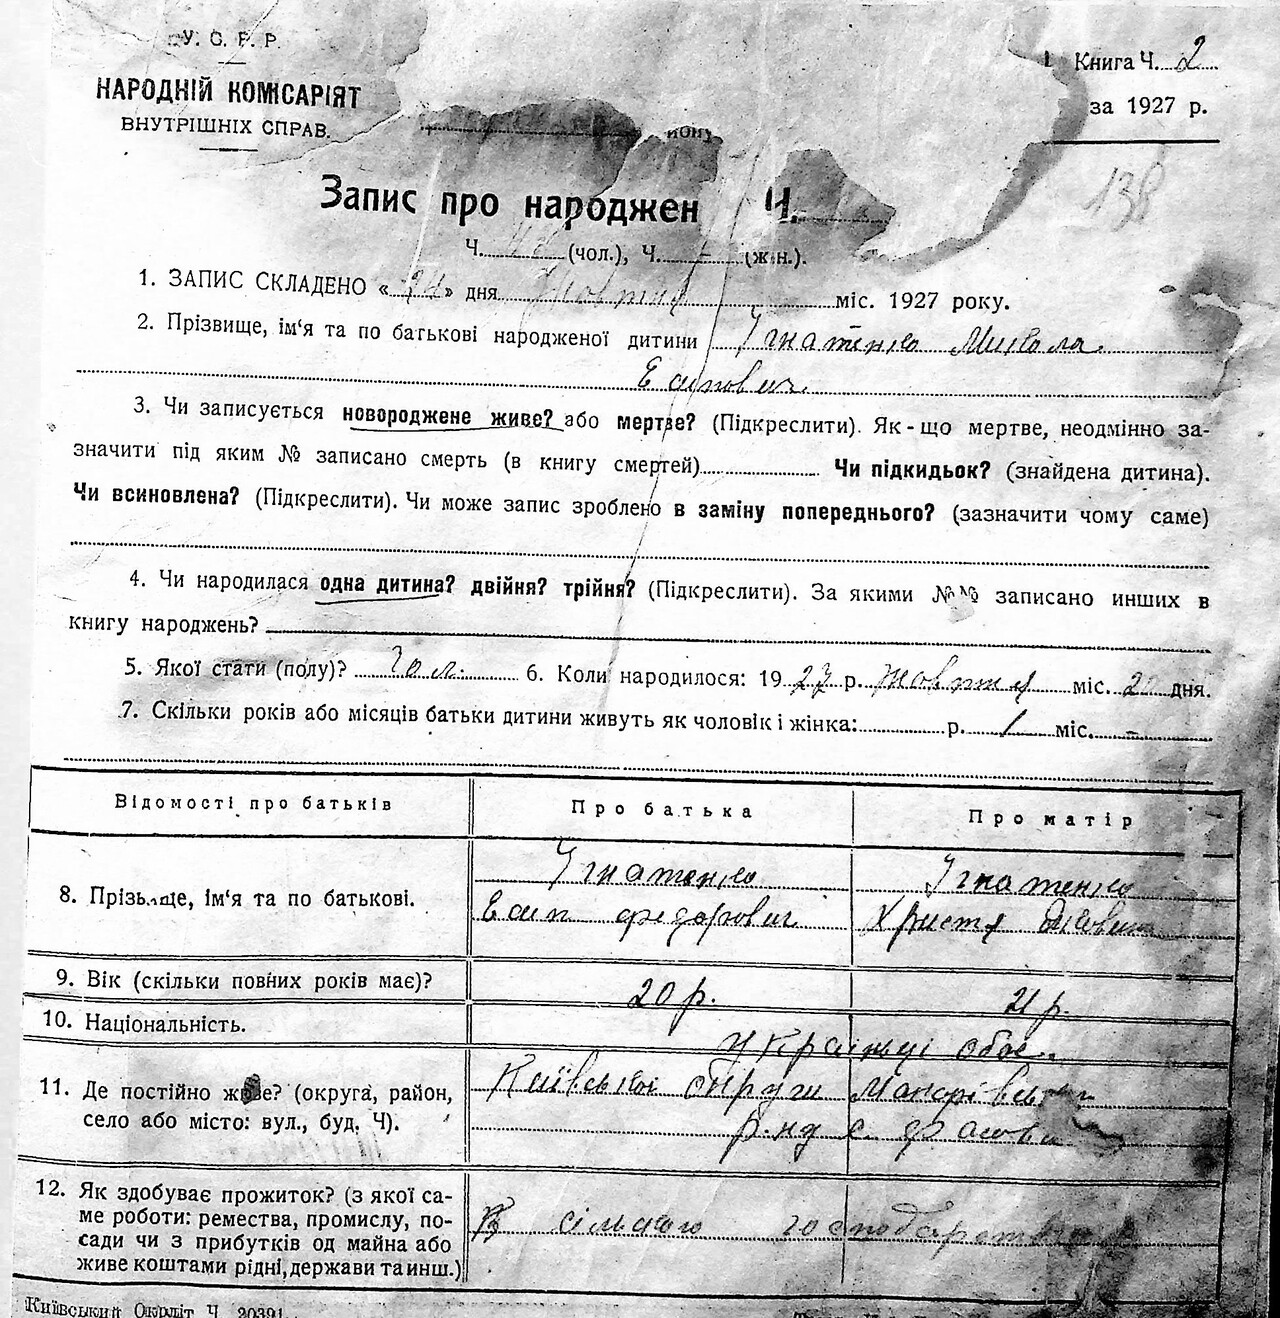 У. С. Р. Р.
Книга Ч. 2
НАРОДНІЙ КОМІСАРІЯТ
за 1927 р.
ВНУТРІШНІХ СПРАВ.
йону
138
Запис про народжен Ч.
Ч. (чол.), Ч. – (ж н.).
1. ЗАПИС СКЛАДЕНО « » дня Жовтня міс. 1927 року.
2. Прізвище, ім‘я та по батькові народженої дитини Ігнатенко Микола
Есипович
3. Чи записується новороджене живе? або мертве? (Підкреслити). Як-що мертве, неодмінно за-
значити під яким № записано смерть (в книгу смертей) Чи підкидьок? (знайдена дитина).
Чи всиновлена? (Підкреслити). Чи може запис зроблено в заміну попереднього? (зазначити чому саме)
4. Чи народилася одна дитина? двійня? трійня? (Підкреслити). За якими №№ записано инших в
книгу народжень?
5. Якої стати (полу)? Чол. 6. Коли народилося: 1927 р. Жовтня міс. дня.
7. Скільки років або місяців батьки дитини живуть як чоловік і жінка: р. 1 міс. –
Відомості про батьків Про батька Про матір
Ігнатенко Ігнатенко
8. Прізвище, ім‘я та по батькові. Есип Федорович Христя
9. Вік (скільки повних років має)? 20 р. 21 р.
10. Національність. Українці обоє
11. Де постійно живе? (округа, район, Київської округи Макарівськ
село або місто: вул., буд. Ч). р-ну с. Фасова
12. Як здобуває прожиток? (з якої са-
ме роботи: ремества, промислу, по- З сільского господарства
сади чи з прибутків од майна або
живе коштами рідні, держави та инш.)
Київський Окрліт Ч. 20391